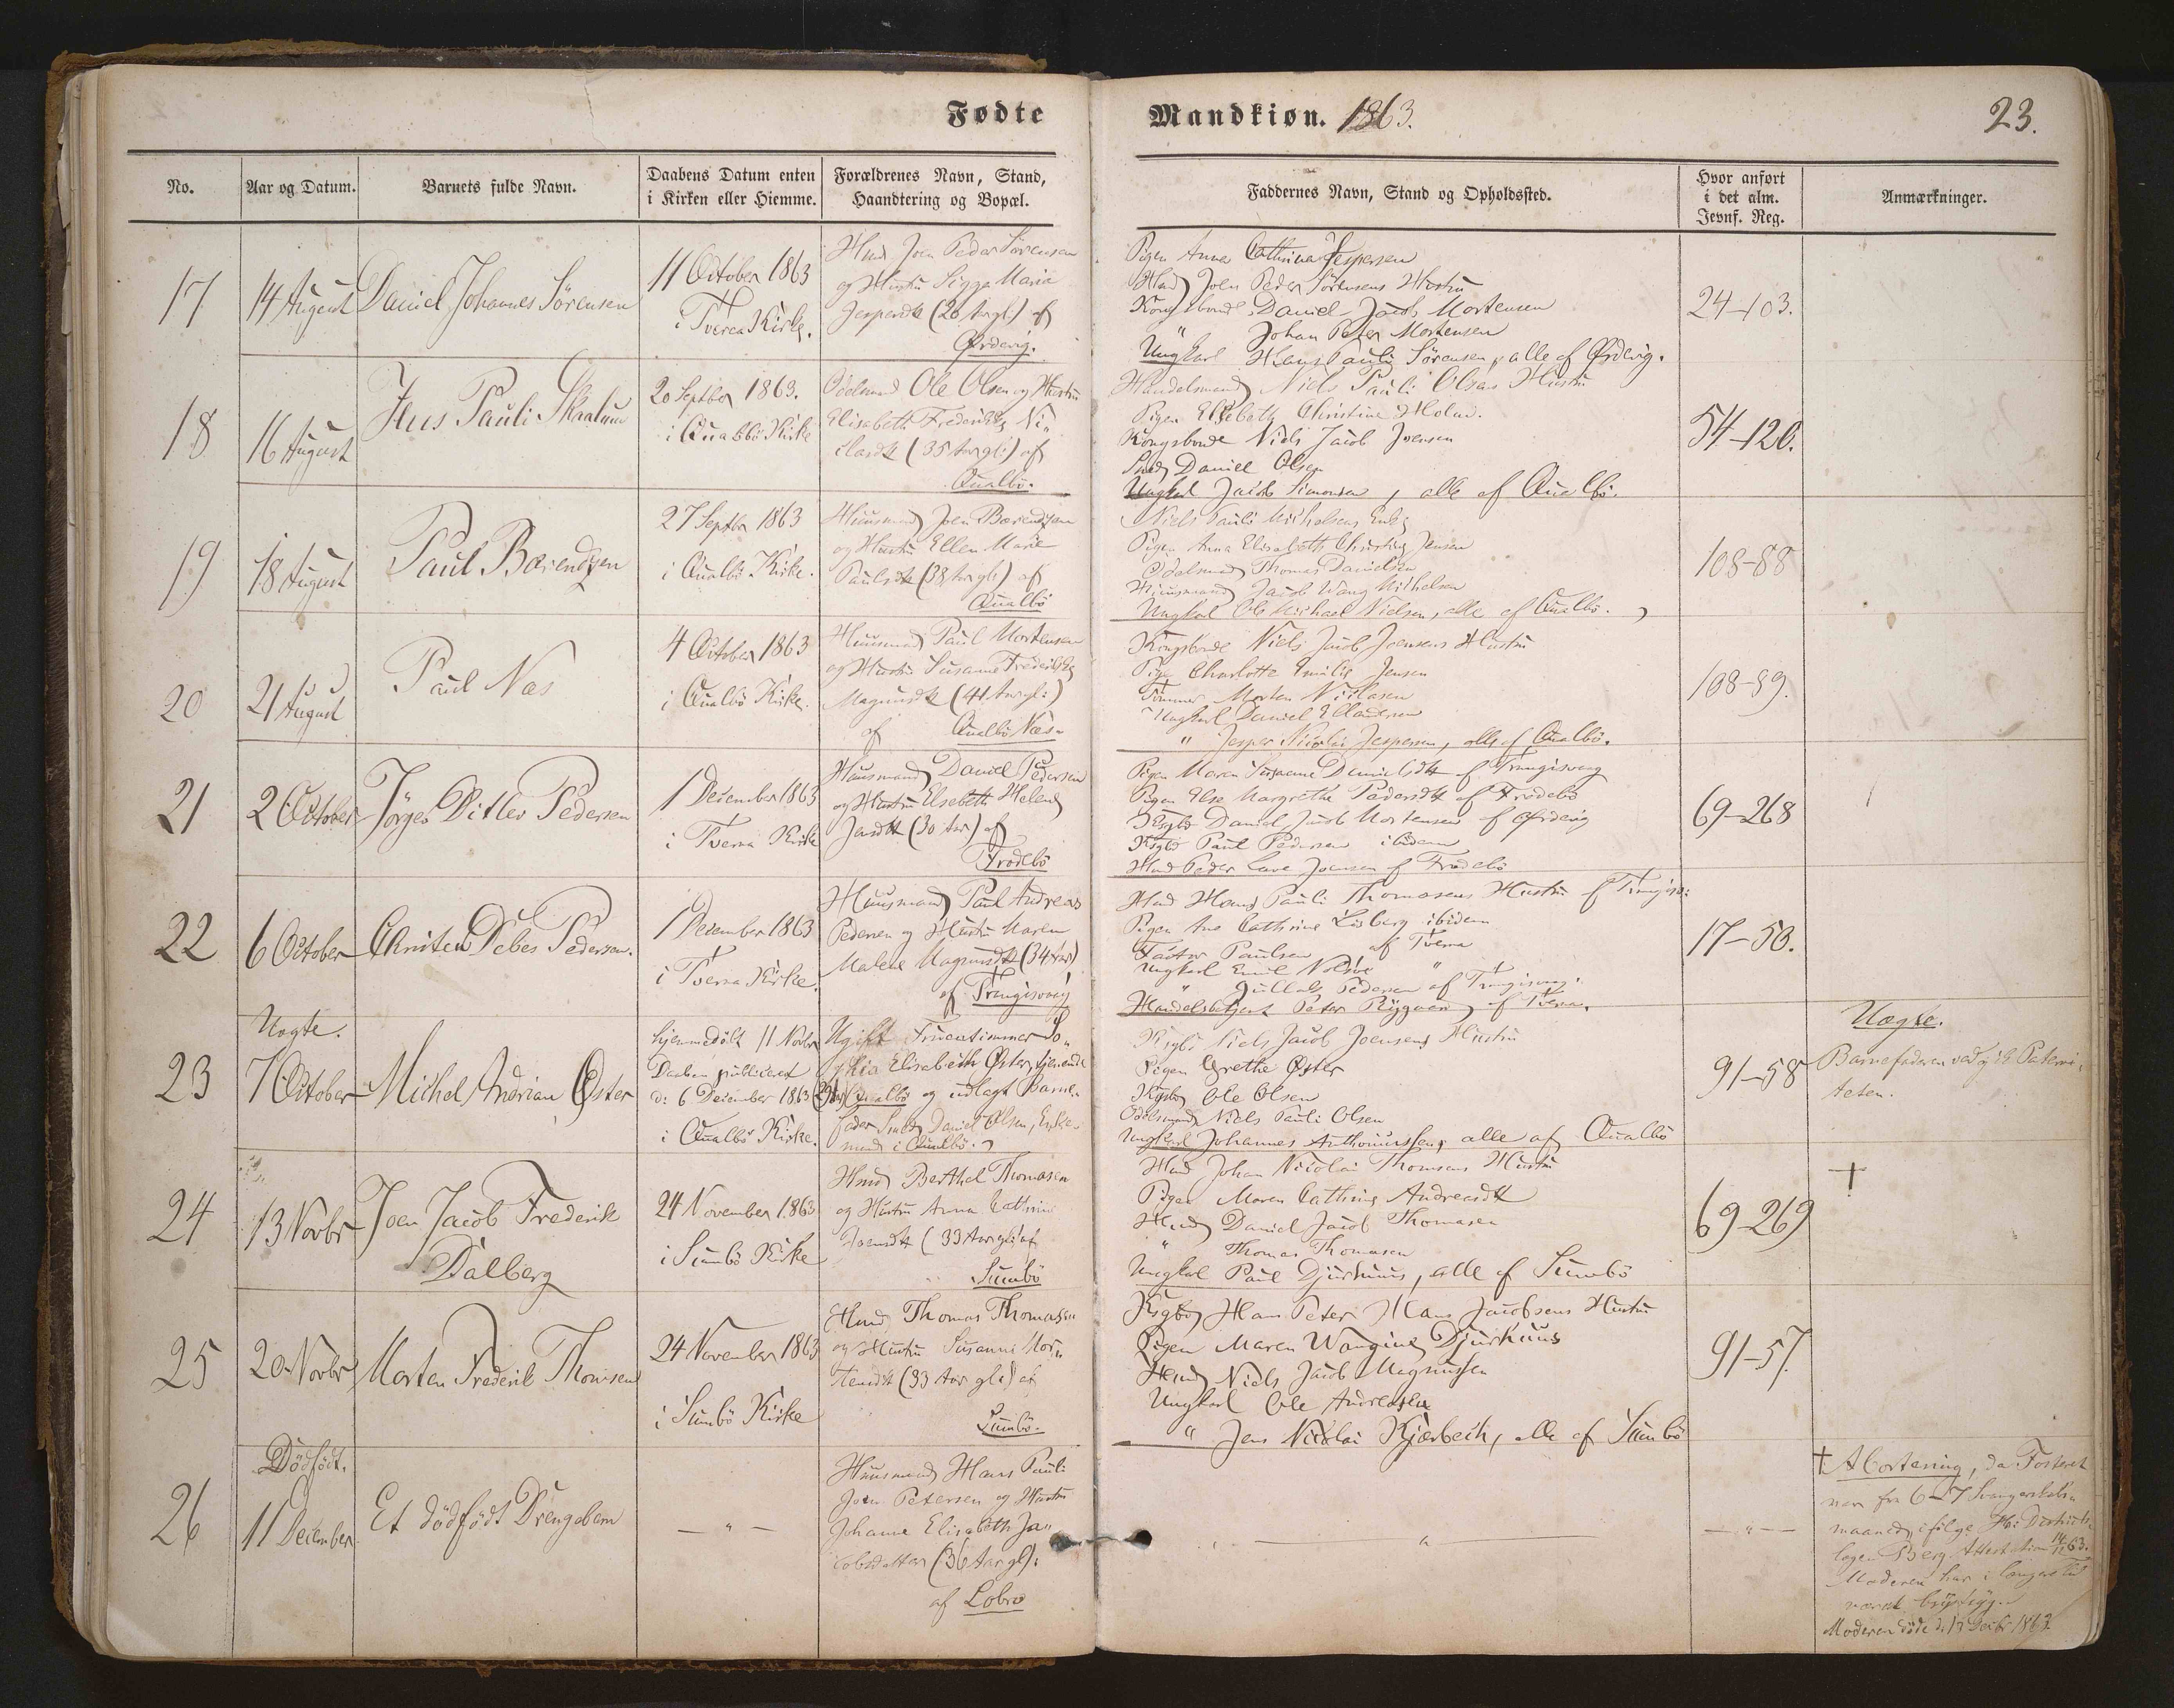 Fødte
Mandkiøn. 1863.
23.
No.
Aar og Datum.
Barnets fulde Navn.
Daabens Datum enten
i Kirken eller Hiemme.
Forældrenes Navn, Stand,
Haandtering og Bopæl.
Faddernes Navn, Stand og Opholdssted.
Hvor anført
i det alm.
Jevnf. Reg.
Anmærkninger.
17
14 August
Daniel Johannes Sörensen
11 October 1863
i Tveraa Kirke.
Hmd Joen Peder Sörensen
og Hustru Sigga Maria
Jespersdtr (20 Aar gl.) af
Ørdevig.
Pigen Anna Cathrina Jespersen
Hmd Joen Peder Sörensens Hustru
Kongsbonde Daniel Jacob Mortensen
" Johan Peter Mortensen
Ungkarl Hans Pauli Sörensen, alle af Ørdevig.
24-103.
18
16 August
Jens Pauli Skaalum
20 Septbr 1863.
i Qualbö Kirke
Odelsmd Ole Olsen og Hustru
Elisabeth Frederikke Ni-
clasdtr (35 Aar gl:) af
Qualbö.
Handelsmand Niels Pauli Olsens Hustru
Pigen Elsebeth Christine Holm.
Kongsbonde Niels Jacob Joensen
Smed Daniel Olsen
Ungkarl Jacob Simonsen, alle af Qualbö.
54-120.
19
18 August
Paul Bærendsen
27 Septbr 1863
i Qualbö Kirke.
Huusmand Joen Bærendsen
og Hustru Ellen Marie
Paulsdtr (38 Aar gl) af
Qualbö
Niels Pauli Michelsens Enke
Pigen Anna Elisabeth Christine Jensen
Odelsmand Thomas Danielsen
Huusmand Jacob Wang Michelsen
Ungkarl Ole Michael Nielsen, alle af Qualbö.
108-88
20
21 August
Paul Næs
4 October 1863
i Qualbö Kirke.
Huusmand Paul Mortensen
og Hustru Susanne Frederikke
Magnusdtr (41 Aar gl:)
af Qualbö Næs.
Kongsbonde Niels Jacob Joensens Hustru
Pige Charlotte Emilie Jensen
Tömmer Morten Niclasen
Ungkarl Daniel Ellendsen
" Jesper Nicolai Jespersen, alle af Qualbö.
108-89.
21
2 October
Jörgen Ditlev Pedersen
1 December 1863
i Tveraa Kirke
Huusmand Daniel Pedersen
og Hustru Elsebeth Helene
(30 Aar) af
Frodebö
Pigen Maren Susanne Danielsdtr af Trangisvaag
Pigen Else Margrethe Pedersdtr af Frodebö
Kgsbd Daniel Jacob Mortensen af Ørdevig
Kgsbd Paul Pedersen ibidem
Hmd Peder Joensen af Frodebö
69-268
22
6 October
Christen Debes Pedersen.
1 December 1863
i Tveraa Kirke.
Huusmand Paul Andreas
Pedersen og Hustru Maren
Malene Magnusdtr (34 Aar)
af Trangisvaag
Hmd Hans Pauli Thomasens Hustru af Trangisv:
Pigen Ane Cathrine Lisberg ibidem
Factor Paulsen af Tveraa
Ungkarl Emil Nolsöe "
" Pedersen af Trangisvaag.
Handelsbetjent Peter af Tveraa.
17-50.
23
Uægte.
7 October
Michel Andrian Öster
hjemmedöbt 11 Novbr
Daaben publiceret
d: 6 December 1863
i Qualbö Kirke.
Ugift Fruentimmer So-
phia Elisabeth Öster, tjenende
Qualbö og udlagt Barne-
fader Smed Daniel Olsen, Enke-
mand i Qualbö.
Kgsbd Niels Jacob Joensens Hustru
Pigen Grethe Öster
Kgsbd Ole Olsen
Odelsmand Niels Pauli Olsen
Ungkarl Johannes Anthoniussen, alle af Qualbö
91-58
Uægte.
Barnefaderen vedgik Paterni-
teten.
24
13 Novbr
Joen Jacob Frederik
Dalberg
24 November 1863
i Sumbö Kirke
Hmd Berthel Thomasen
og Hustru Anna Cathrine
Joensdtr (33 Aar gl.) af
Sumbö
Hmd Johan Nicolai Thomsens Hustru
Pigen Maren Cathrine Andreasdtr
Hmd Daniel Jacob Thomasen
" Thomas Thomasen
Ungkarl Paul Djurhuus, alle af Sumbö
69-269
†
25
20 Novbr
Morten Frederik Thomsen
24 November 1863
i Sumbö Kirke
Hmd Thomas Thomasen
og Hustru Susanne Mor-
tensdtr (33 Aar gl.) af
Sumbö.
Kgsbd Hans Peter Hans Jacobsens Hustru
Pigen Maren Wangine Djurhuus
Hmd Niels Jacob Magnussen
Ungkarl Ole Andreasen
" Jens Nicolai Kjærbech, alle af Sumbö
91-57.
26
Dödfödt.
11 December
Et dödfödt Drengebarn
— " —
Huusmand Hans Pauli
Joen Petersen og Hustru
Johanne Elisabeth Ja-
cobsdatter (36 Aar gl):
af Lobra
"
— " —
† Abortering, da Fosteret
var fra 6-7 Svangerskabs
maaned, ifölge Hr: Districts-
læge Berg Attestation 14/12 63.
Moderen har i længere Tid
været brystsyg.
Moderen döde d. 13 Decbr 1863.